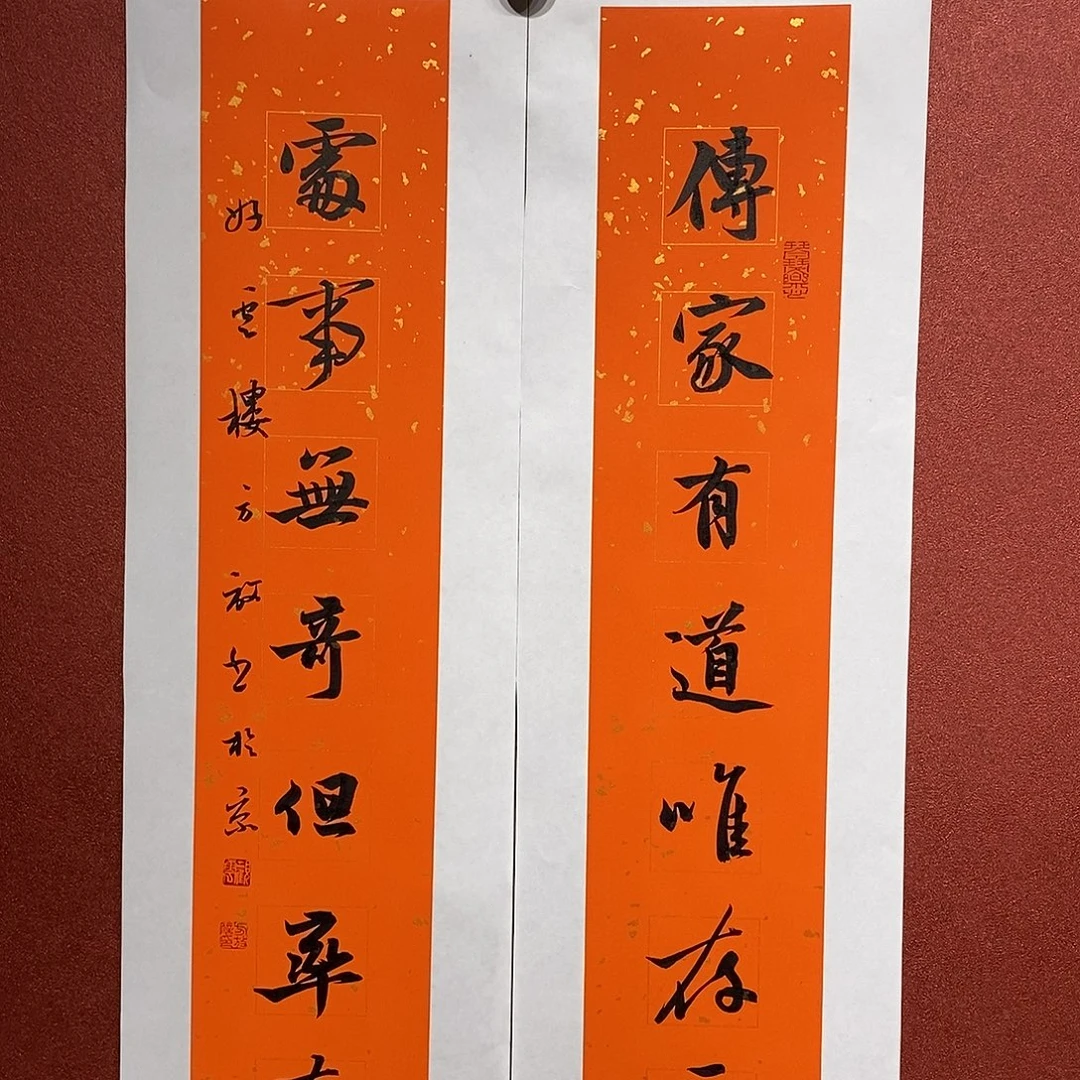 傳家有道唯存
處事無奇但率
好雲樓方放書於京